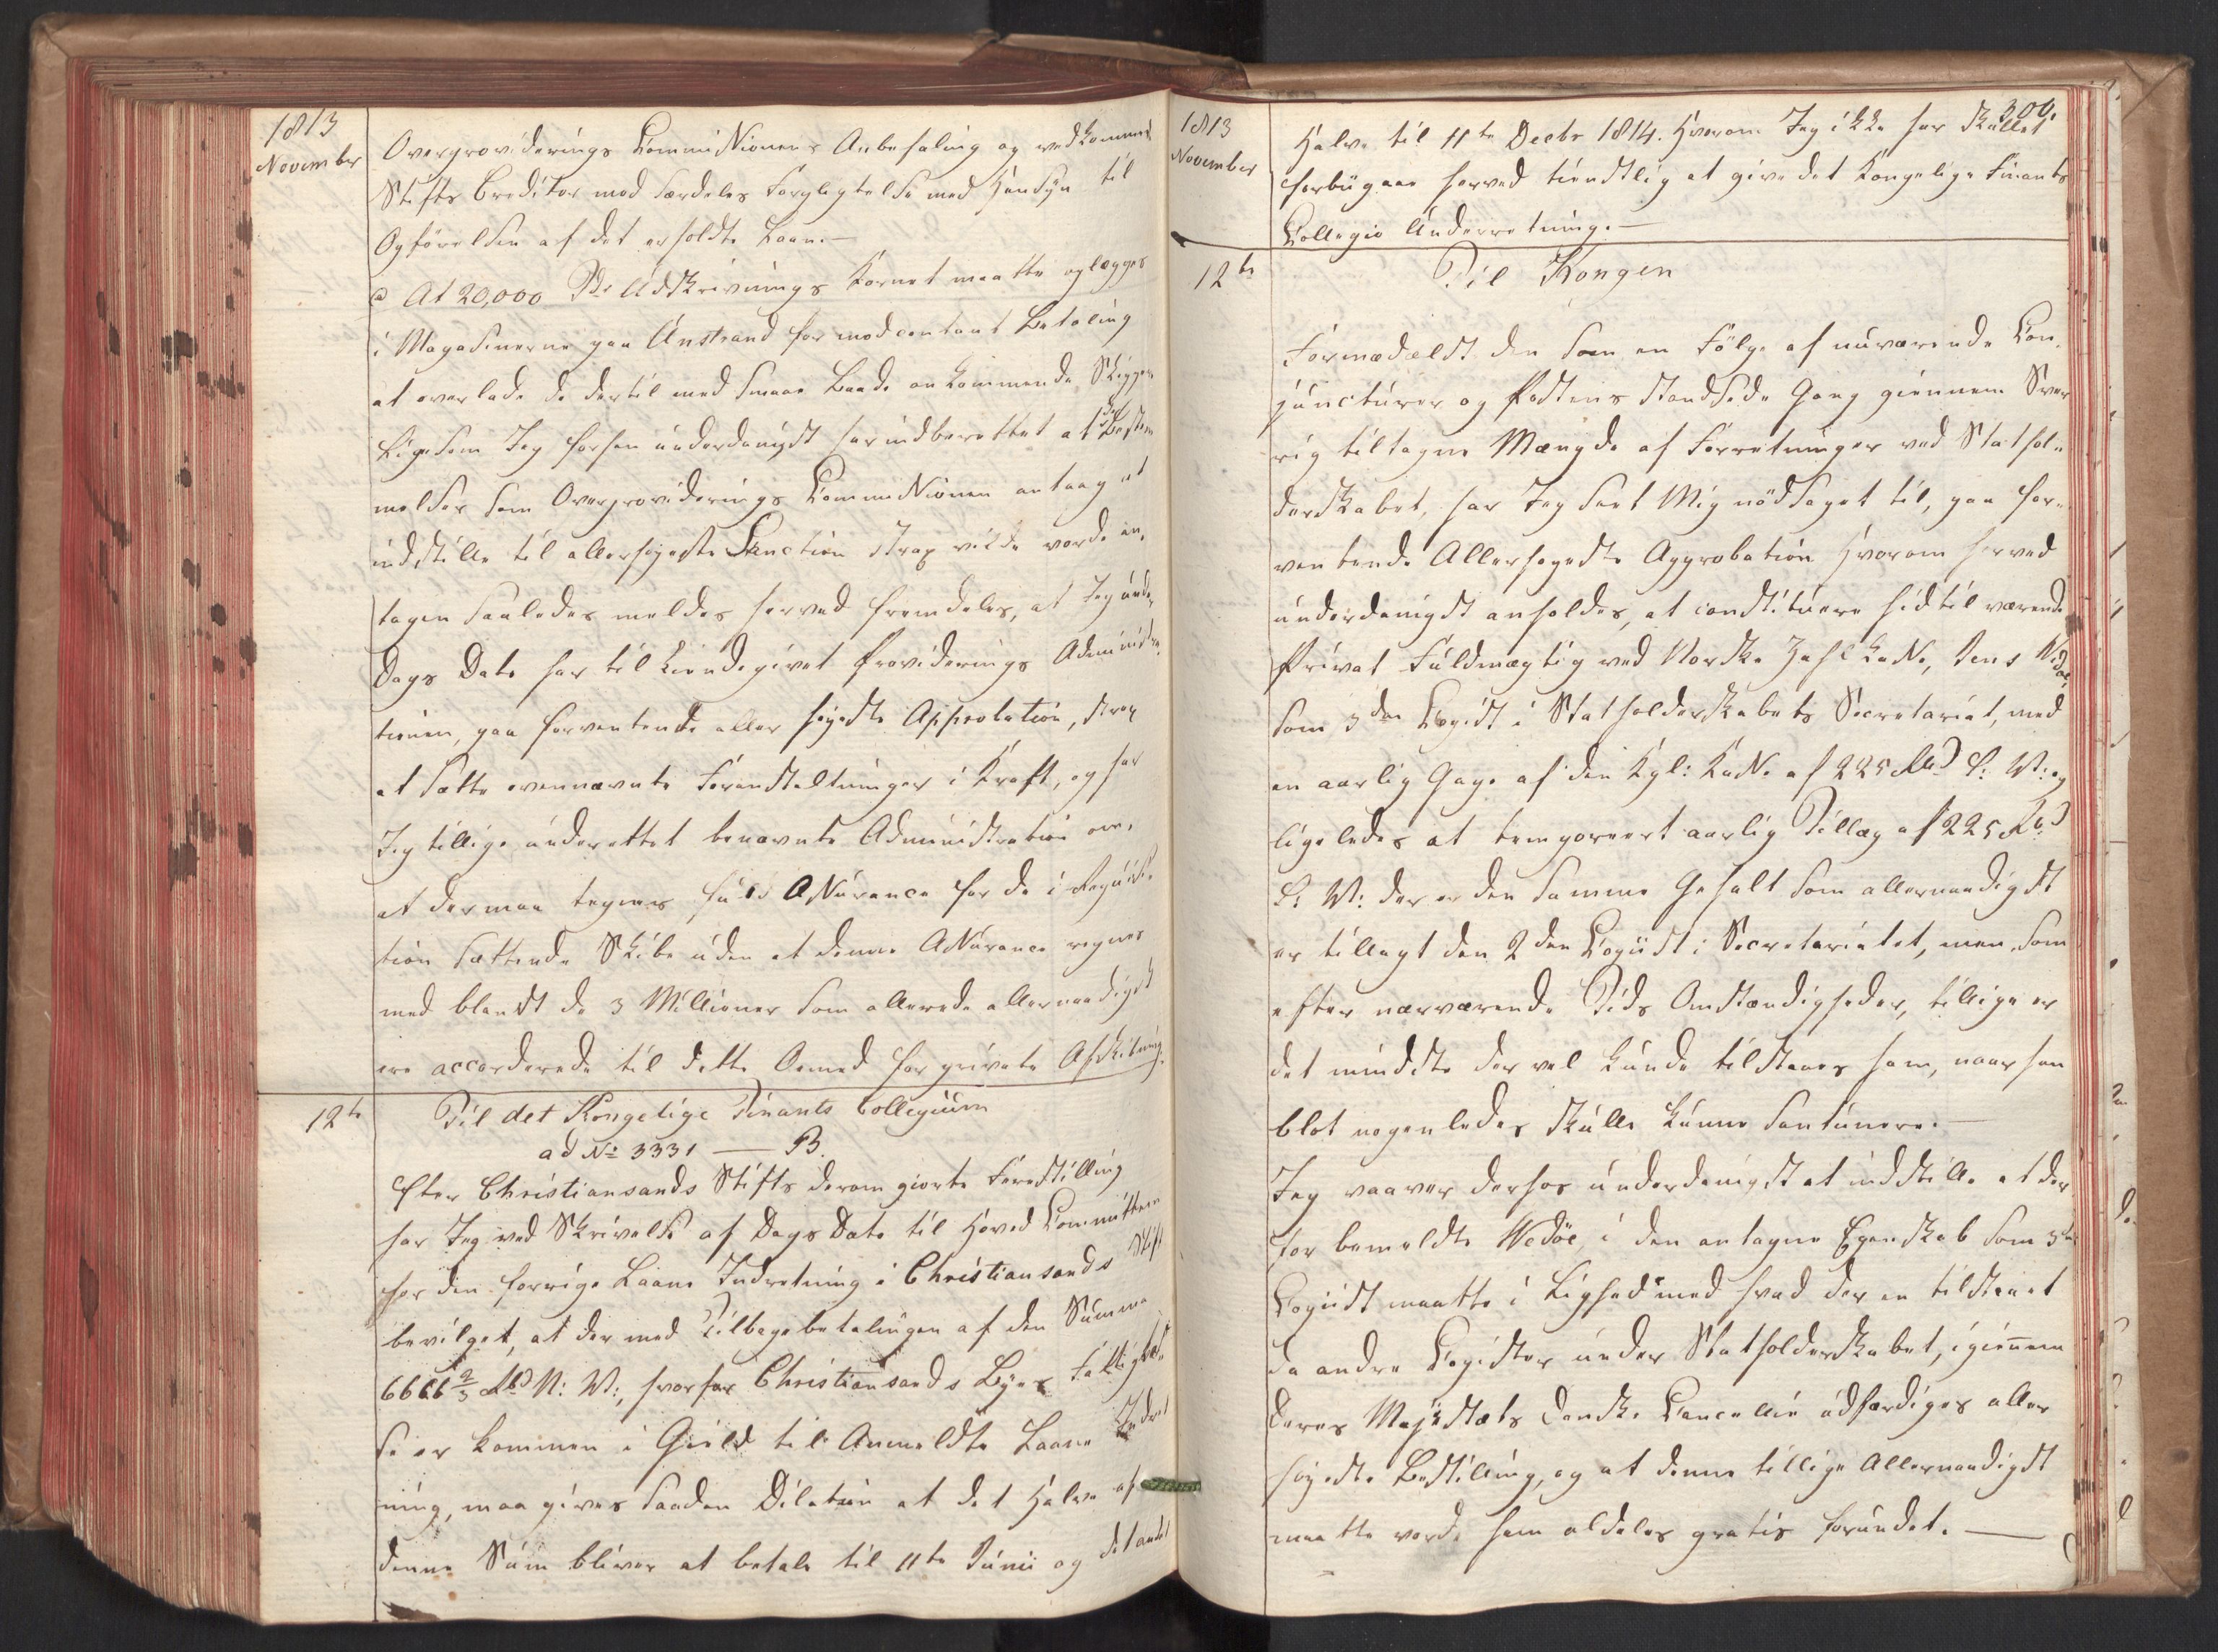 1813
November
Overproviderings Commissionens Anbefaling og vedkomme
Stifts Creditor mod særdeles Forpligtelse med Hensyn til
Opførelsen af det erholdte Laan.—
c At 20,000 Tdr Udskrivnings Kornet maatte oplægges
i Magasinerne paa Anstrand for mod contant Betaling
at overlade de dertil med smaae Baade ankommende Skipper
Ligesom Jeg forhen underdanigst har indberettet at de Bestem
melser som Overproviderings Commissionen antaag at
indstille til allerhøyeste Sanction strax vilde vorde an,
tagen saaledes meldes herved fremdeles, at Jeg under
Dags Dato har tilkiendegivet Providerings Administra,
tionen, paa forventende aller høyeste Approbation, strax
at sætte ovennævnte Foranstaltninger i Kraft, og har
Jeg tillige underrettet benævnte Administration om,
at der maa tegnes fuld Assurance for de i Requisi,
tion sættende Skibe uden at denne Assurance regnes
med blandt de 3 Millioner som allerede allernaadigst
ere accorderede til dette Øemed for private Afskibning.
12te
Til det Kongelige Finants Collegium
ad No 3331 — B.
Efter Christiansands Stifts derom giorte Forestilling
har Jeg ved Skrivelse af Dags Dato til Hoved Committeen
for den forrige Laane Indretning i Christiansands Stift
bevilget, at der med Tilbagebetalingen af den Summa
6666 2/3 Rbd N: V:, hvorfor Christiansands Byes Fattigkas
se er kommen i Gield til Anmeldte Laane Indret
ning, maa gives saadan Dilation at det Halve af
denne Sum bliver at betale til 11te Junii og det andet
1813
November
300.
Halve til 11te Decbr 1814. Hvorom Jeg ikke har skullet
forbigaae herved tienstlig at give det Kongelige Finants
Collegio Underretning.—
12te
Til Kongen
Formedelst den som en Følge af nuværende Con,
juncturer og Postens standsede Gang giennem Sver
rig tiltagne Mængde af Forretninger ved Stathol,,
derskabet, har Jeg seet Mig nødsaget til, paa for,,
ventende Allerhøyeste Approbation hvorom herved
underdanigst anholdes, at constituere hidtil værende
Privat Fuldmægtig ved Norske Zahlkasse, Jens Wedøe,
som 3die Copiist i Statholderskabets Secretariat, med
en aarlig Gage af den Kgl: Kasse af 225 Rbd S: V: og
ligeledes et temporært aarlig Tillæg af 225 Rbd
S: V: der er den samme Gehalt som allernaadigst
er tillagt den 2den Copiist i Secretariatet, men som
efter nærværende Tids Omstændigheder, tillige er
det mindste der vel kunde tilstaaes ham, naar han
blot nogenledes skulle kunne soutinere.—
Jeg vaaver derhos underdanigst at indstille at der
for bemeldte Wedøe i den antagne Egenskab som 3die
Copiist maatte i Lighed med hvad der er tilstaaet
de andre Copister under Statholderskabet, igiennem
Deres Majestæts Danske Cancellie udfærdiges aller
høyeste Bestilling, og at denne tillige Allernaadigst
maatte vorde ham aldeles gratis forundet.—